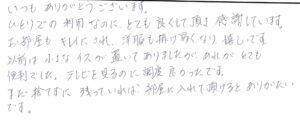 いつも ありがとうございます。
ひとりでの利用なのに、とても良くして頂き 感謝しています。
お部屋も キレイにされ、洋服も掛け易くなり 嬉しいです。
以前は 小さなイスが置いてありましたが、あれがとても
便利でした。テレビを見るのに調度良かったです。
まだ捨てずに 残っていれば 部屋に入れて頂けるとありがたい
です。